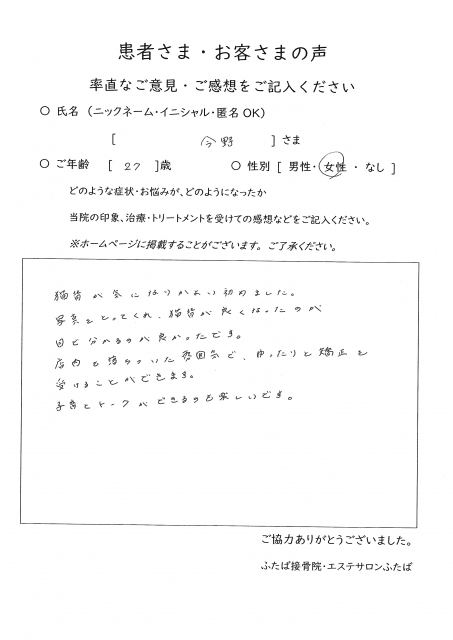 患者さま・お客さまの声
率直なご意見・ご感想をご記入ください
○ 氏名 (ニックネーム・イニシャル・匿名OK)
[ 今野 ] さま
○ ご年齢 [ 27 ]歳 ○ 性別 [ 男性・女性・なし ]
どのような症状・お悩みが、どのようになったか
当院の印象、治療・トリートメントを受けての感想などをご記入ください。
※ホームページに掲載することがございます。ご了承ください。
猫背が気になりかよい初めました。
写真をとってくれ、猫背が良くなったのが
目で分かるのが良かったです。
店内も落ちついた雰囲気で、ゆったりと矯正を
受けることができます。
子育てトークができるのも楽しいです。
ご協力ありがとうございました。
ふたば接骨院・エステサロンふたば